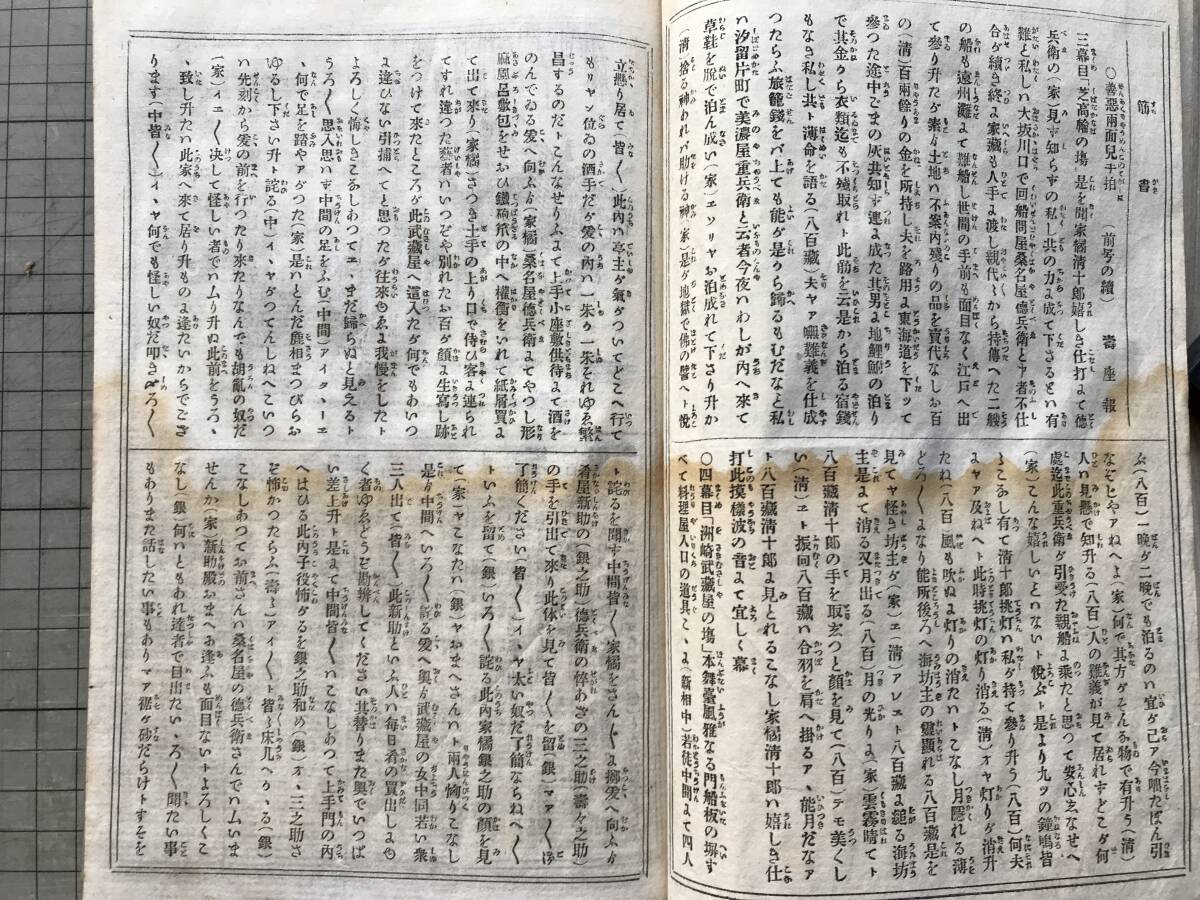 筋書
○善惡兩面兒手拍 (前号の續) 壽座報
三幕目「芝高輪の塲」是を聞家橘清十郎嬉しき仕打よて德
兵衛の(家)見ず知らずの私し共の力よ成て下さるとい有
難い私しい大坂川口で回船問屋桑名屋德兵衛とア者不仕
合ゲ續き終よ家藏も人手よ渡し親代〱から持傳へた二艘
の船も遠州灘よて難船し世間の手前も面目なく江戸へ出
て參り升たゲ素より土地い不案内殘りの品を賣代なしお百
の(清)百兩餘りの金を所持し夫を路用よ東海道を下ッて
參つた途中ごまの灰共知ず連よ成た其男よ地鯉鮒の泊り
で其金から衣類迄も不殘取れト此筋を云是から泊る宿錢
もなき私し共ト海命を語る(八百藏)夫ャァ嘸難義を仕成
つたらふ旅籠錢をバ上ても能ゲ是から歸るもむだなと私
い汐留片町で美濃屋重兵衛と云者今夜いわしが内へ來て
草鞋を脱で泊ん成い(家)エソリャお泊成れて下さり升か
(清)捨る神われバ助ける神(家)是ゲ地獄で佛の譬ト悅
ぶ(八百)一晩ゲ二晩でも泊るのい宜ゲ己ァ今喰たぽん引
なぞじやァねへよ(家)何で其方ゲそんな物で有升う(清)
人い見懸で知升る(八百)人の難義が見て居れずどこゲ何
處迄此重兵衛ゲ引受た親船よ乘たと思つて安心をなせへ
(家)こんな嬉しいとないト悅ぶト是より九ッの鐘鳴皆
〱こあし有て清十郎挑灯い私ゲ持て參り升う(八百)何夫
よャァ及ねへト此時挑灯の灯り消る(清)オャ灯りゲ消升
たね(八百)風も吹ぬよ灯りの消たいトこなし月隱れる薄
どろ〱よなり能所後ろへ海坊主の靈顯れる八百藏是を
見てャ怪き坊主ゲ(家)ヱ(清)アレヱト八百藏よ縋る海坊
主是よて消る又月出る(八百)月の光りよ(家)雲霧晴てト
八百藏清十郎の手を取玄つと顔を見て(八百)テモ美くし
い(清)ヱト振向八百藏い合羽を肩へ掛るァ、能月だなァ
ト八百藏清十郎よ見とれるこなし家橘清十郎い嬉しき仕
打此摸樣波の音よて宜しく幕
○四幕目「洲崎武藏屋の塲」本舞臺風雅なる門船板の塀す
べて料理屋入口の道具こゝよ(新相中)若徒中間よて四人
立懸り居て皆〱此内い亭主ゲ氣ゲついてどこへ行て
もリャン位ゐの酒手だゲ爰の内い一朱り一朱それゆゑ繁
昌するのだトこんなせりふよて上手小座敷供待よて酒を
のんでゐる爰へ向ふより家橘桑名屋德兵衛よてやつし形
麻風呂敷包をせおひ鐵砲笊の中へ權衡をいれて紙屑買よ
て出て來り(家橘)さつき土手の上り口で侍ひ客よ連られ
てすれ違つた藝者いいつぞや別れたお百ゲ顔よ生寫し跡
をつけて來たところゲ此武藏屋へ這入たゲ何でもあいつ
よ違ひない引捕へてと思つたゲ往來ゆゑよ我慢をしたト
よろしく悔しきこあしあつてヱ、まだ歸らぬと見えるト
うろ〱思入思いず中間の足をふむ(中間)アイタ、ヱ
、何で足を踏ャアゲつた(家)是いとんだ麁相まつぴらお
ゆるし下さい升ト詫る(中)イ、ャゲつてんしねへこいつ
い先刻から爰の前を行つたり來たりなんでも胡亂の奴だ
(家)イヱ〱决して怪しい者でいムり升ぬ此前をうろ〱
致し升たい此家へ來て居り升ものよ逢たいからでござ
ります(中皆〱)イ、ャ何でも怪しい奴だ叩きのろ〱
ト詫るを聞ず中間皆〱家橘をさんざよ擲爰へ向ふより
肴屋新助の(銀之助)德兵衛の忰あぎの三之助(壽々之助)
の手を引出て來り此体を見て皆〱を留(銀)マァ〱御
了簡ください(皆〱)イ、ャ太い奴だ了簡ならねへ〱
トいふを留て(銀)いろ〱詫る此内家橘銀之助の顔を見
て(家)ャこなたい(銀)ャおまへさんいト兩人恟りこなし
是より中間へいろ〱詫る爰へ奥より武藏屋の女中同若い衆
三人出て皆〱此新助といふ人い毎日肴の買出しよゆ
く者ゆゑどうぞ勘辨してください其替りまた奥でいつぱ
い差上升ト是よて中間皆〱いこなしあつて上手門の内
へはひる此内子役怖ゲるを銀之助和め(銀)オ、三之助さ
ぞ怖かつたらふ(壽〻)アイ〱ト皆〱床几へかゝる(銀)
こなしあつてお前さんい桑名屋の德兵衛さんでいムいま
せんか(家)新助殿おまへよお逢ふも面目ないトよろしくこ
なし(銀)何いともわれ達者で目出たいいろ〱聞たい事
もありまた話したい事もありマァ裾ゲ砂だらけトすそを